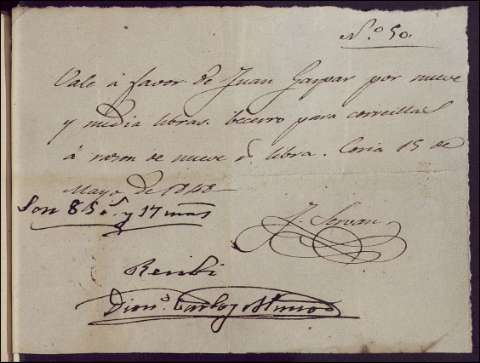 N.º 50.
Vale á favor de Juan Gaspar por nueve
y media libras becerro para correillas
á razon de nueve r.s libra. Coria 15 de
Mayo de 1843
Son 85 r.s y 17 mrs
J. Servan
Recibi
Dion.º Carlos Alonso